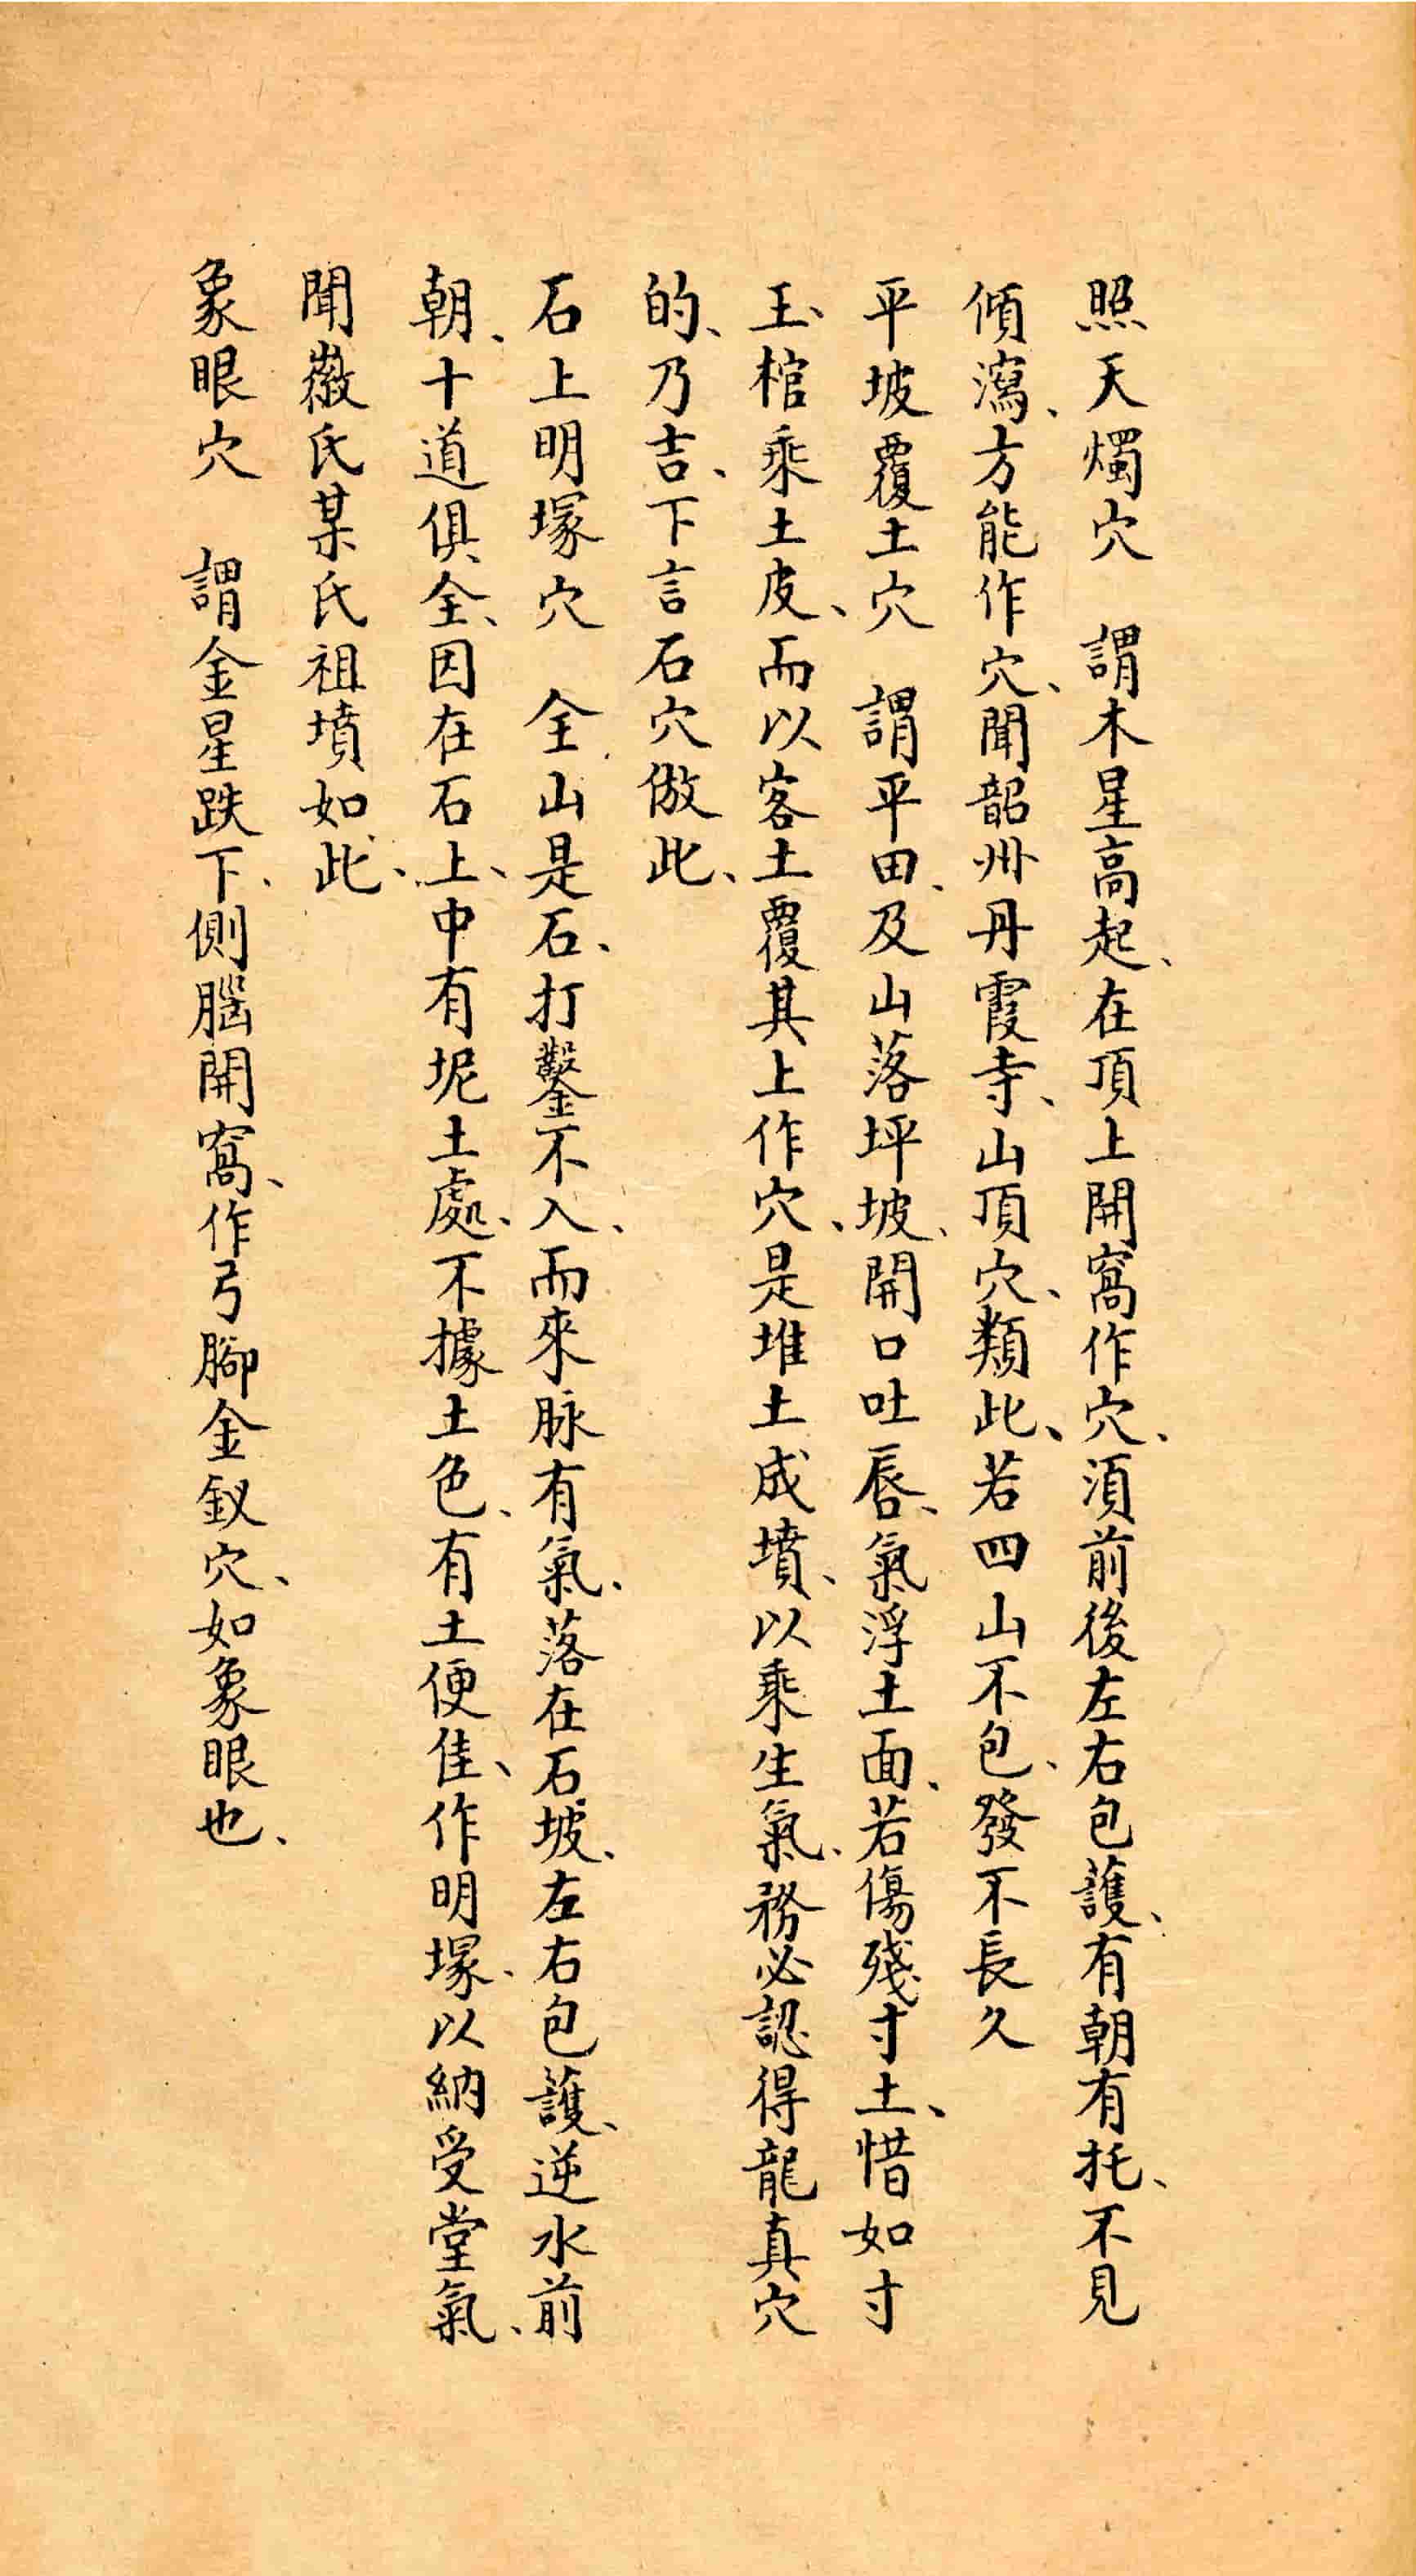 照天燭穴　謂木星高起、在頂上開窩作穴、須前後左右包護、有朝有托、不見
傾瀉、方能作穴、聞韶州丹霞寺、山頂穴、類此、若四山不包、發不長久
平坡覆土穴　謂平田、及山落坪坡、開口吐唇、氣浮土面、若傷殘寸土、惜如寸
玉、棺乘土皮、而以客土覆其上作穴、是堆土成墳、以乘生氣、務必認得龍真穴
的、乃吉、下言石穴倣此、
石上明塚穴　全山是石、打鑿不入、而來脉有氣、落在石坡、左右包護、逆水前
朝、十道俱全、因在石上、中有坭土處、不據土色、有土便佳、作明塚、以納受堂氣、
聞徽氏某氏祖墳如此、
象眼穴　謂金星跌下、側腦開窩、作弓腳金釵穴、如象眼也、